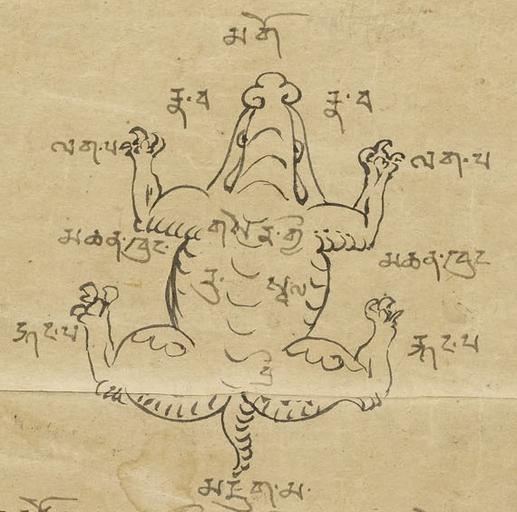 མགོ
རྣ་བ རྣ་བ
ལག་པ ལག་པ
མཆན་ཁུང མཆན་ཁུང
རུ་ སྦལ
རྐང་པ རྐང་པ
མཇུག་མ་